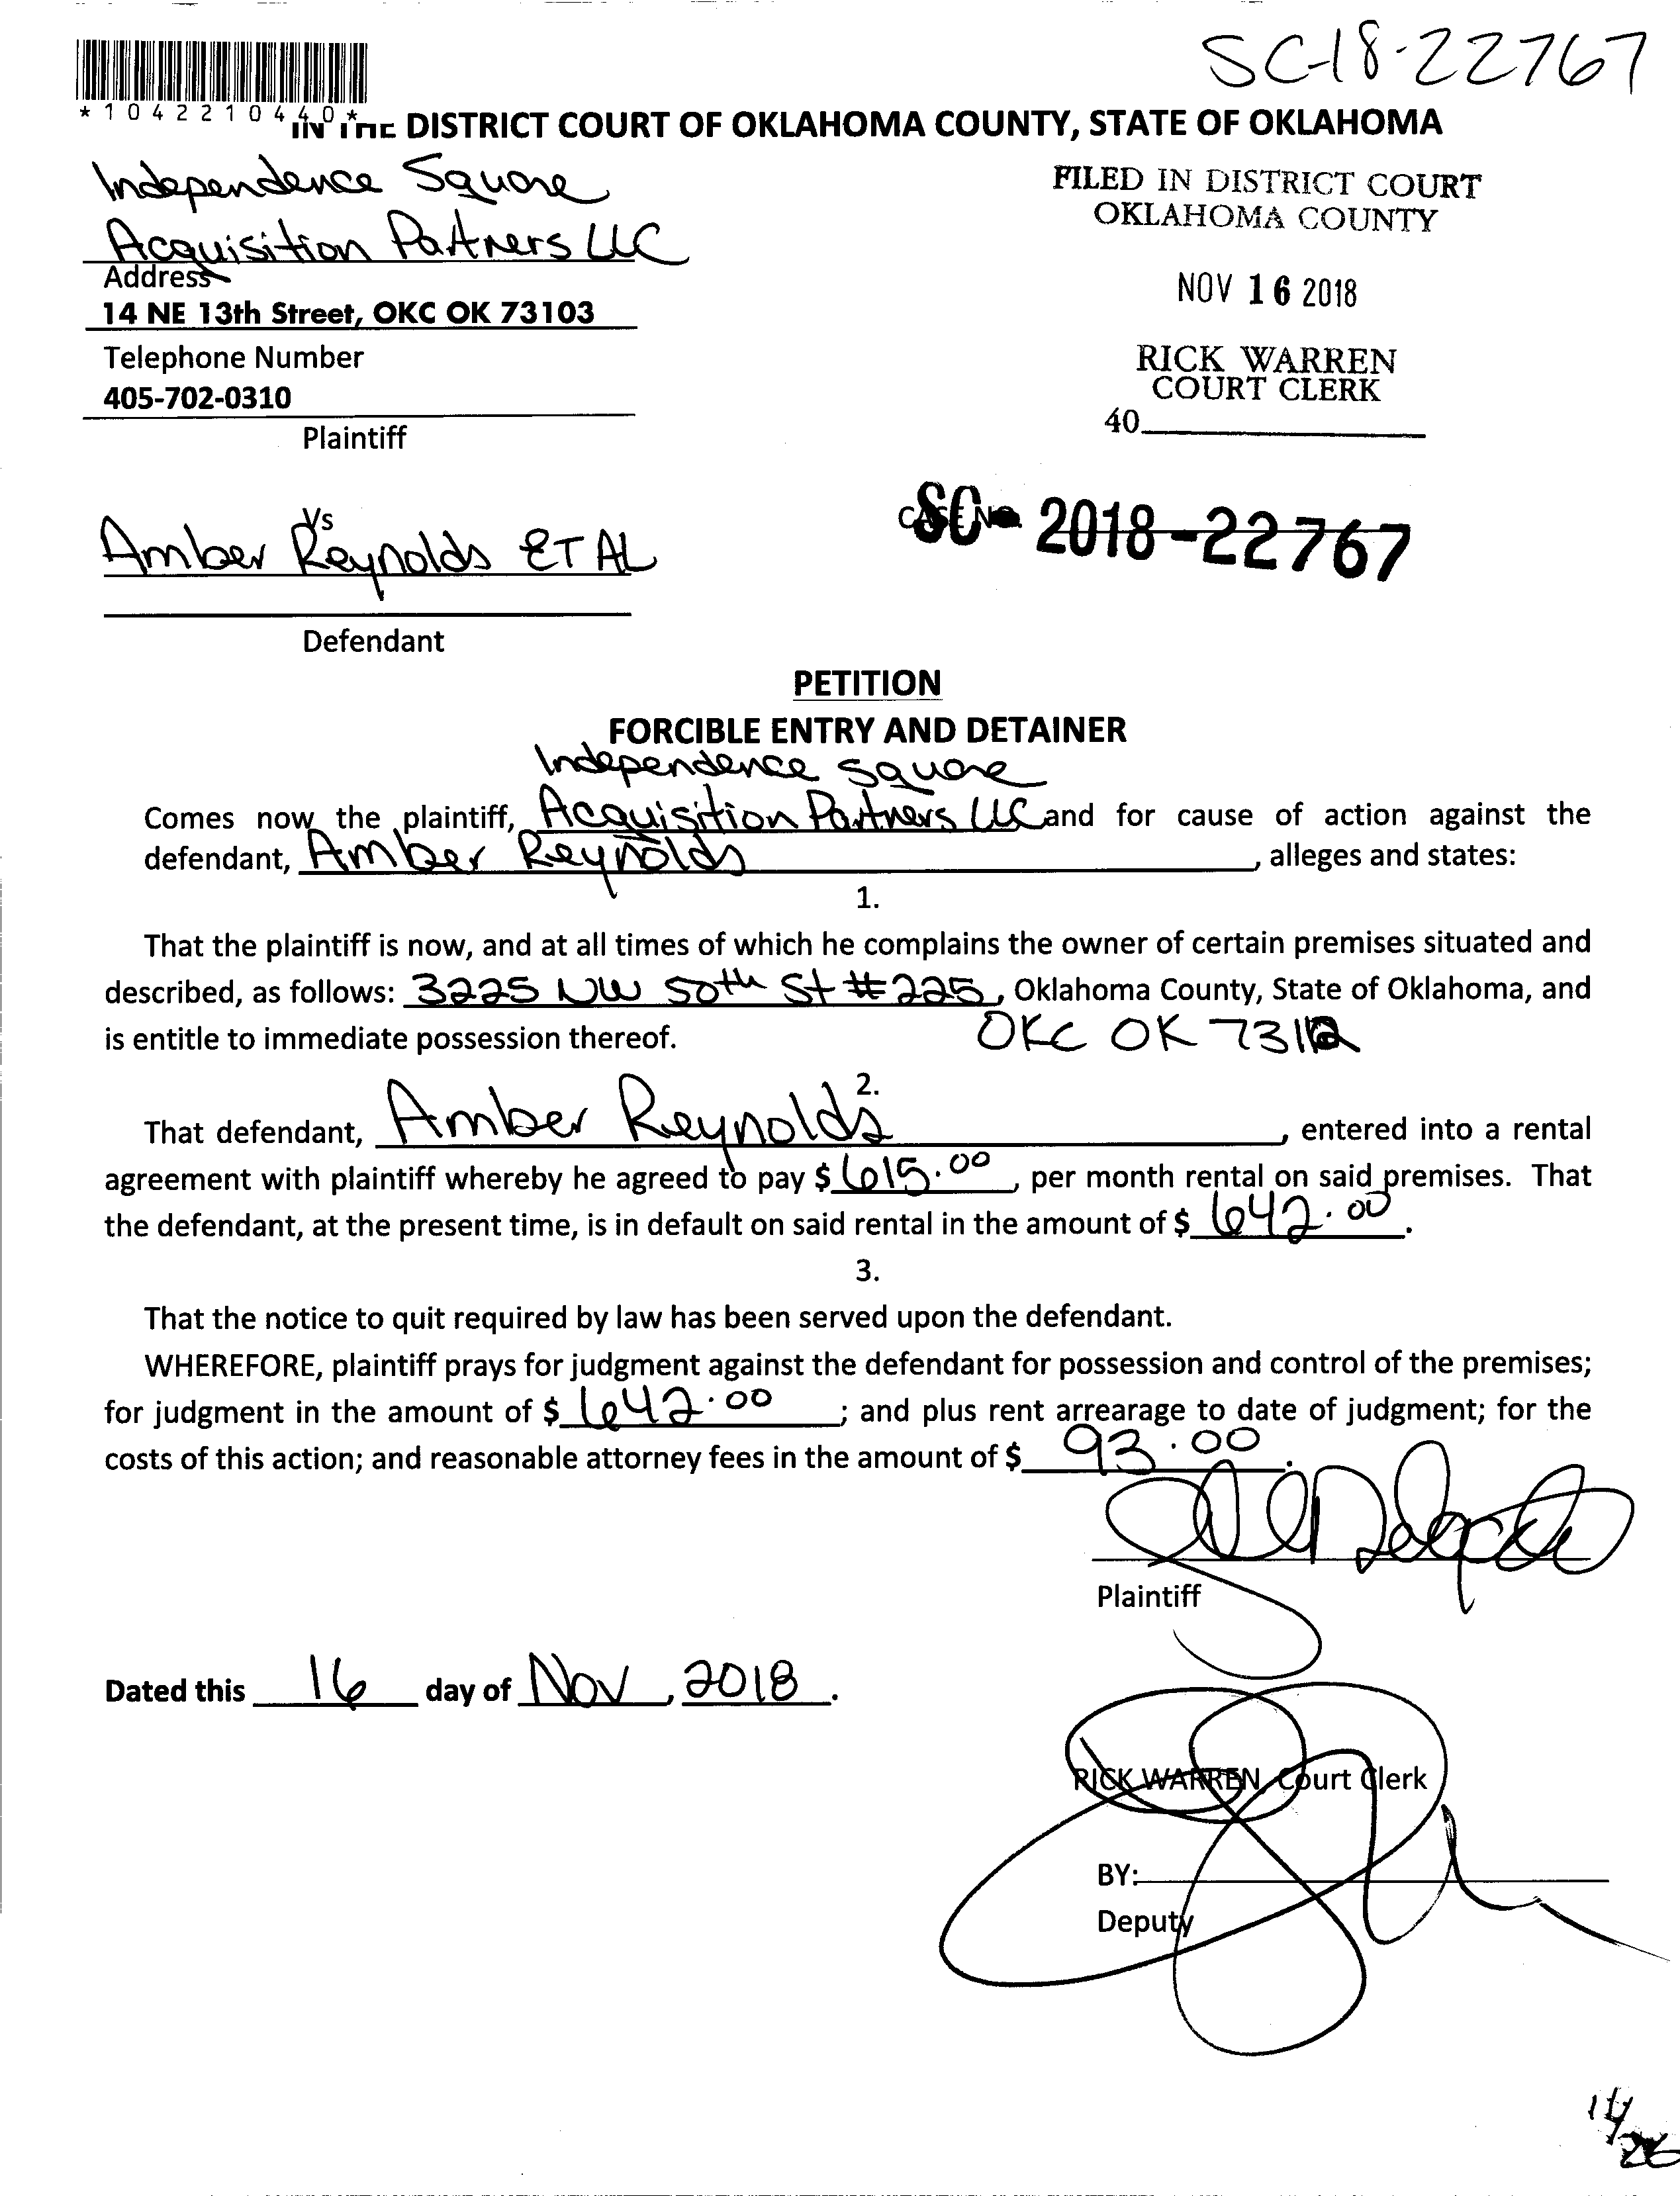 SC-18-22767
*1042210440*
IN THE DISTRICT COURT OF OKLAHOMA COUNTY, STATE OF OKLAHOMA
Independence Square
Acquisition Partners LLC
Address
14 NE 13th Street, OKC OK 73103
Telephone Number
405-702-0310
Plaintiff
FILED IN DISTRICT COURT
OKLAHOMA COUNTY
NOV 16 2018
RICK WARREN
COURT CLERK
40
Vs
Amber Reynolds ET AL
Defendant
CASE NO. SC- 2018-22767
PETITION
FORCIBLE ENTRY AND DETAINER
Independence Square
Comes now the plaintiff, Acquisition Partners LLC and for cause of action against the
defendant, Amber Reynolds, alleges and states:
1.
That the plaintiff is now, and at all times of which he complains the owner of certain premises situated and
described, as follows: 3225 NW 50th St #225, Oklahoma County, State of Oklahoma, and
is entitle to immediate possession thereof. OKC OK 73112
2.
That defendant, Amber Reynolds, entered into a rental
agreement with plaintiff whereby he agreed to pay $ 615.00, per month rental on said premises. That
the defendant, at the present time, is in default on said rental in the amount of $ 642.00.
3.
That the notice to quit required by law has been served upon the defendant.
WHEREFORE, plaintiff prays for judgment against the defendant for possession and control of the premises;
for judgment in the amount of $ 642.00; and plus rent arrearage to date of judgment; for the
costs of this action; and reasonable attorney fees in the amount of $ 93.00.
Plaintiff
Dated this 16 day of Nov, 2018.
RICK WARREN, Court Clerk
BY:
Deputy
11/26